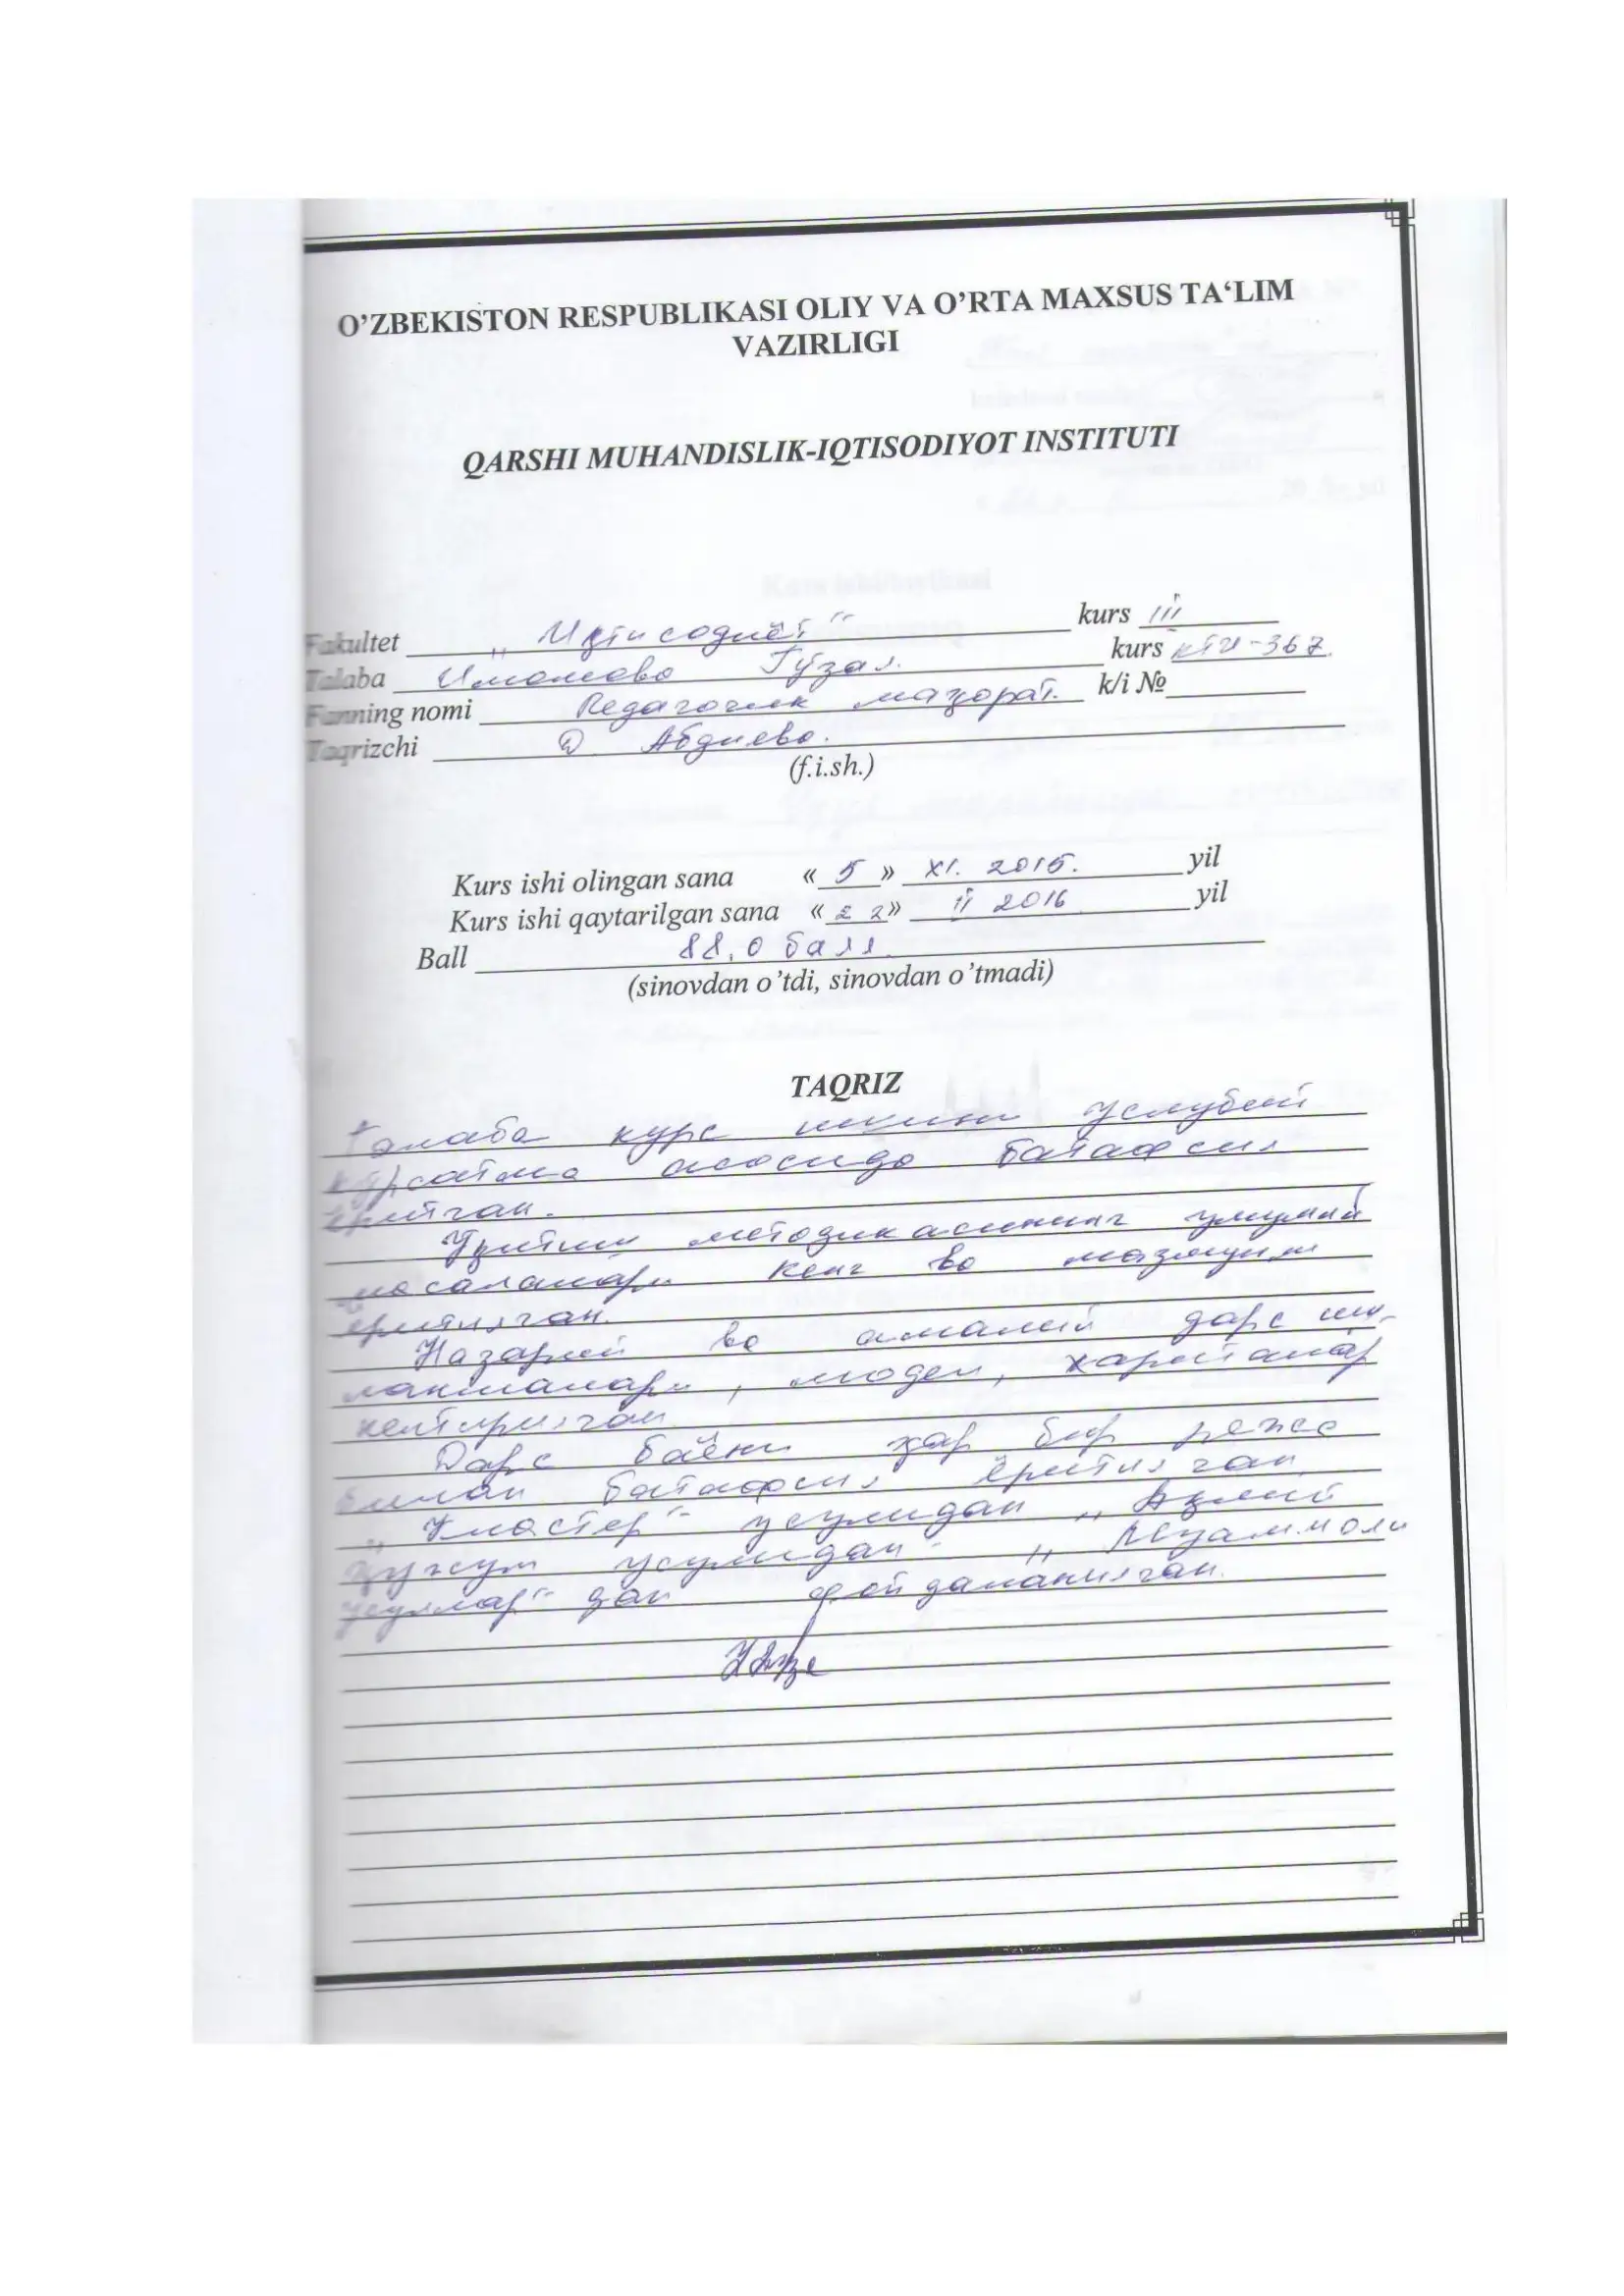 O’ZBEKISTON RESPUBLIKASI OLIY VA O’RTA MAXSUS TA‘LIM
VAZIRLIGI
QARSHI MUHANDISLIK-IQTISODIYOT INSTITUTI
Fakultet „Иқтисодиёт“ kurs III
Talaba Имомова Гўзал. kurs КТИ-367
Fanning nomi Педагогик маҳорат. k/i №
Taqrizchi Д Абдиева.
(f.i.sh.)
Kurs ishi olingan sana « 5 » XI. 2015. yil
Kurs ishi qaytarilgan sana « 22 » II 2016 yil
Ball 88,0 балл
(sinovdan o’tdi, sinovdan o’tmadi)
TAQRIZ
Талаба курс ишини услубий
кўрсатма асосида батафсил
ёритган.
Ўқитиш методикасининг умумий
масалалари кенг ва мазмунли
ёритилган.
Назарий ва амалий дарс иш-
ланмалари, модел, хариталар
келтирилган
Дарс баёни ҳар бир режа
билан батафсил ёритилган
„Кластер“ усулидан „Ақлий
ҳужум усулидан“ „Муаммоли
усуллар“дан фойдаланилган.